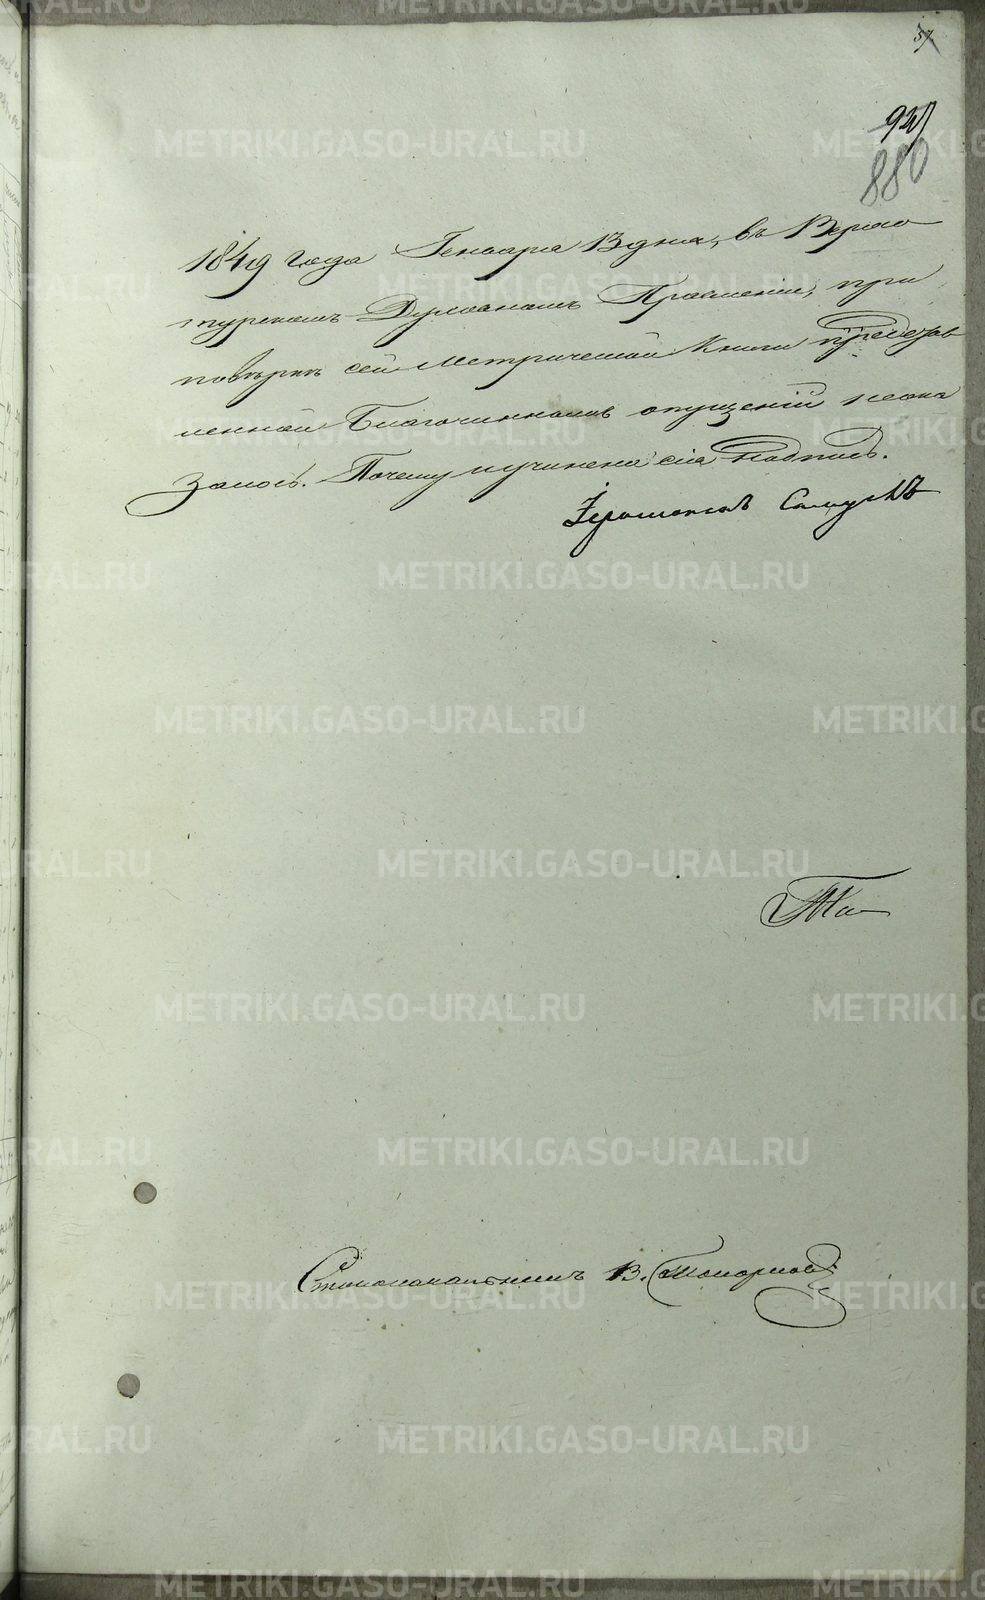 57
880
1849 года Генваря 13 дня, въ Верхо
турскомъ Духовномъ Правленіи, при
повѣркѣ сей Метрической Книги представ
ленной Благочиннымъ опущеній неока
залось. Почему и учинена сія надпись.
Столоначальникъ В. Топорковъ
METRIKI.GASO-URAL.RU